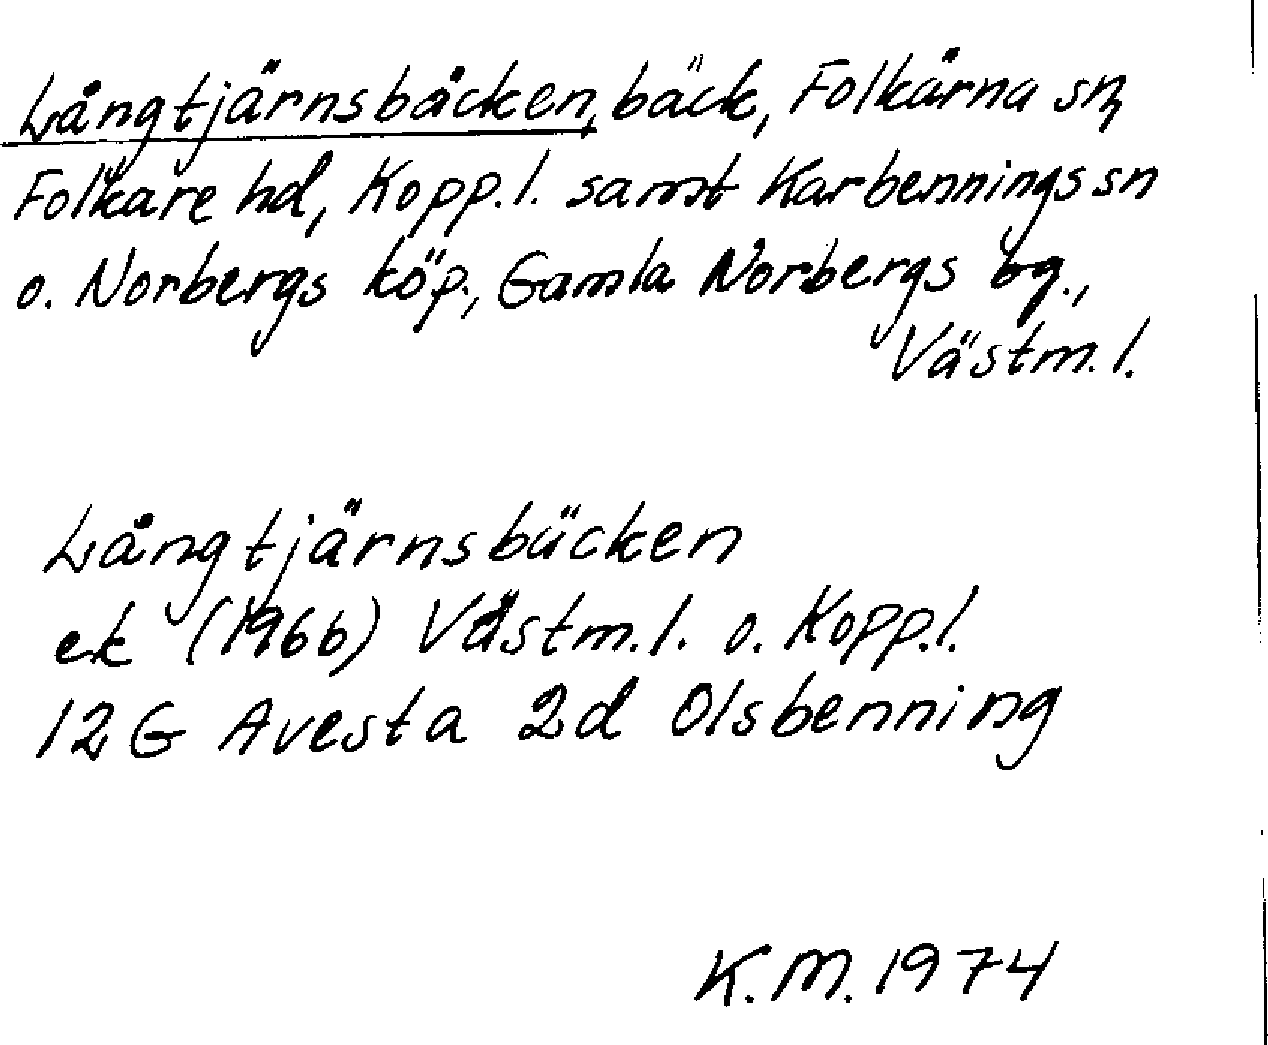 Långtjärnsbäcken, bäck, Folkärna sn,
Folkare hd, Kopp.l. samt Karbennings sn
o. Norbergs köp., Gamla Norbergs bg.,
Västm.l.
Långtjärnsbäcken
ek (1966) Västm.l. o. Kopp.l.
12G Avesta 2d Olsbenning
K.M. 1974